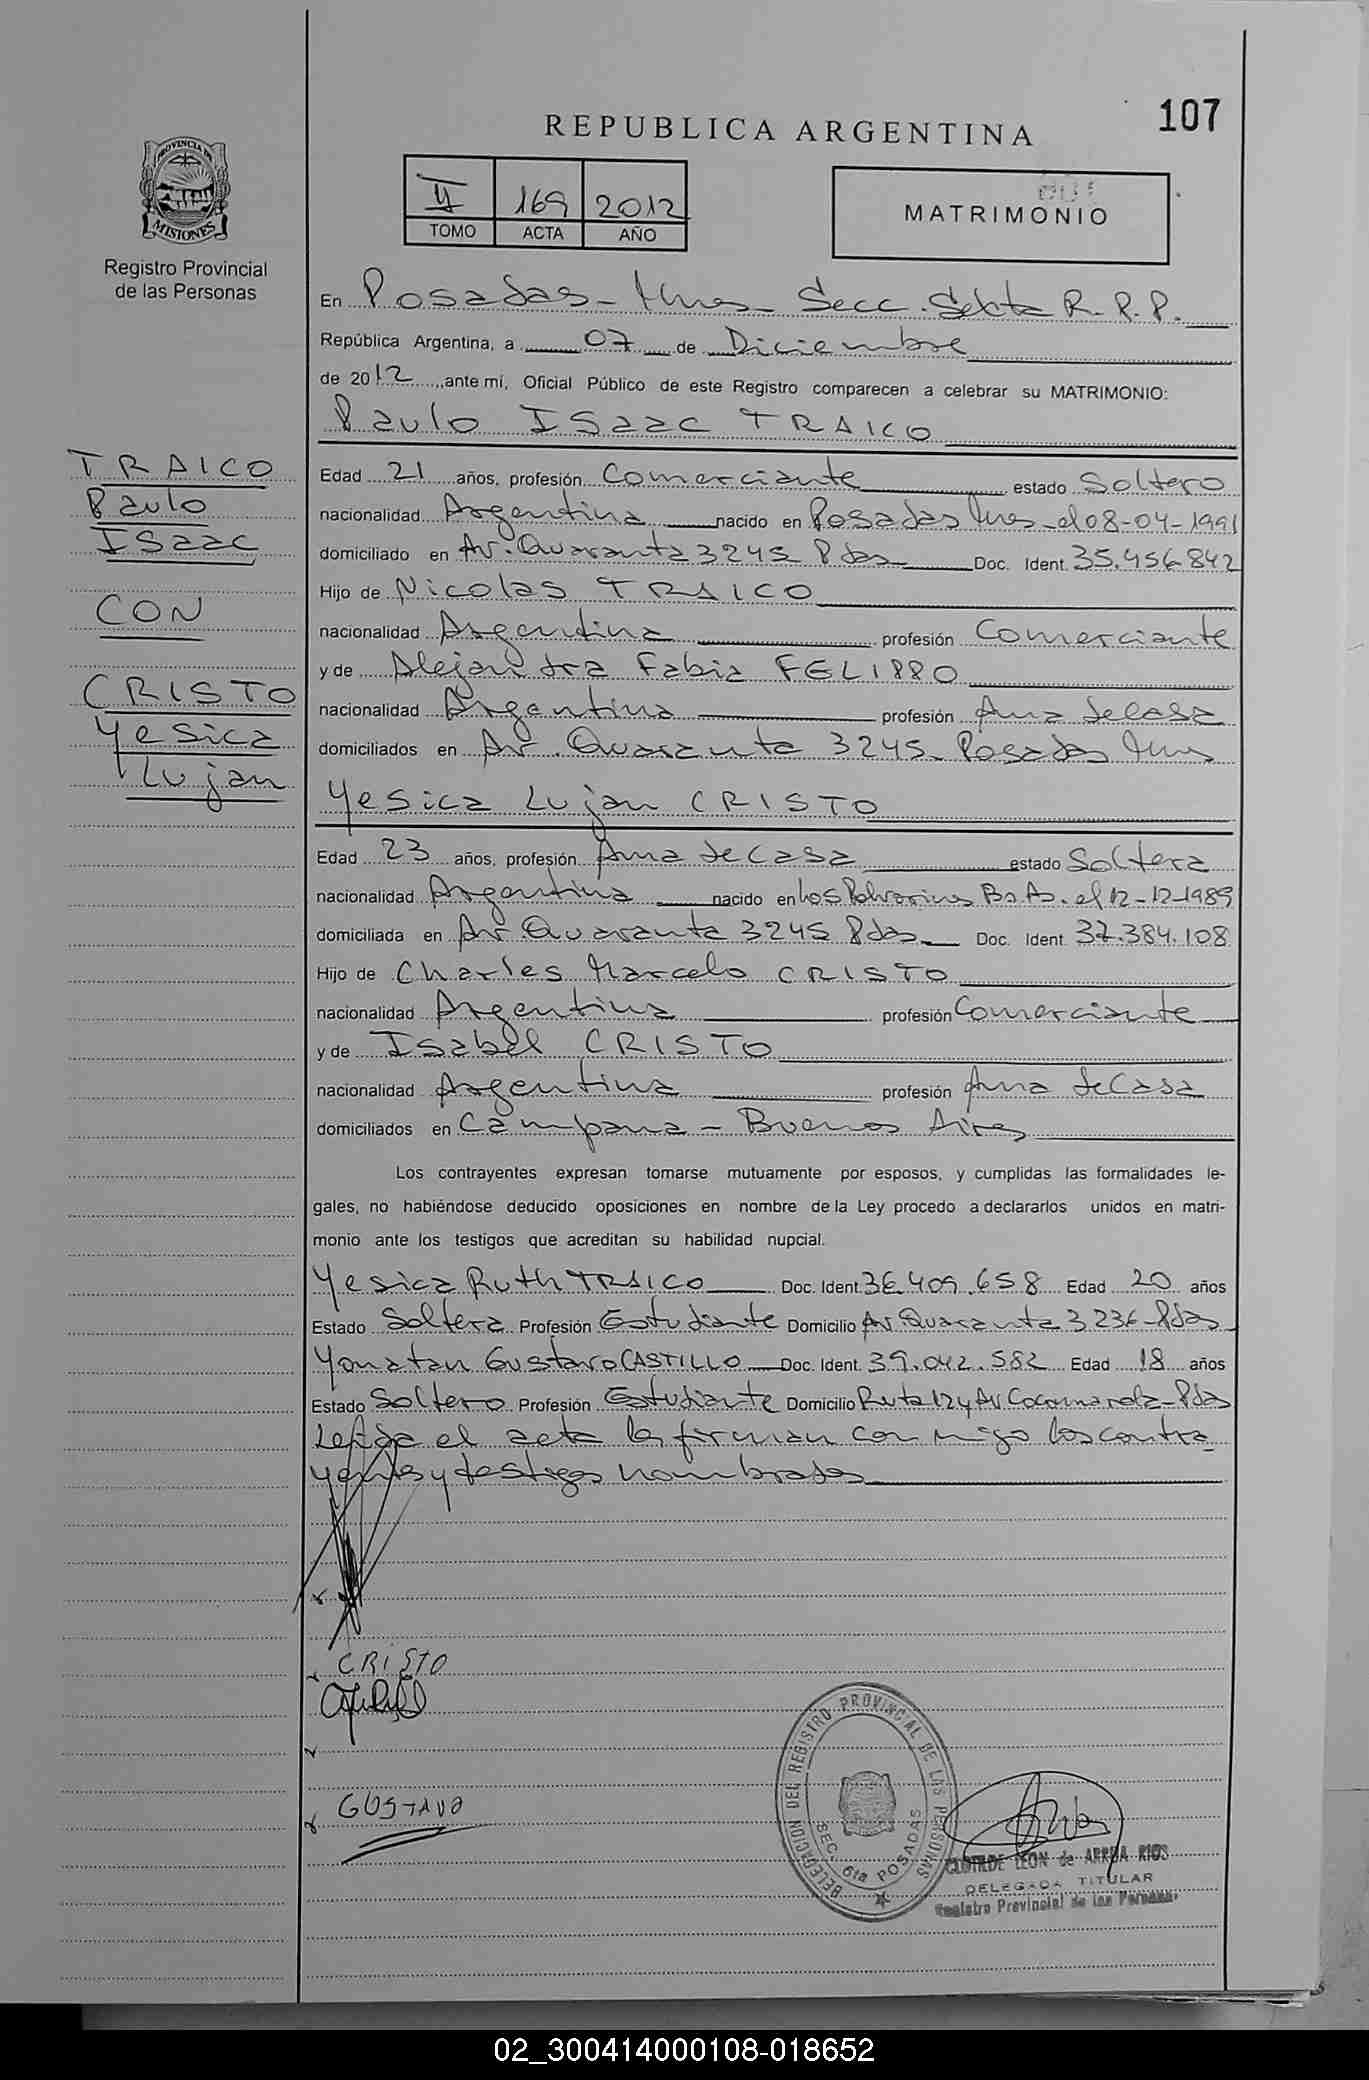 107
REPUBLICA ARGENTINA
PROVINCIA DE
MISIONES
Registro Provincial
de las Personas
II 169 2012
TOMO ACTA AÑO
MATRIMONIO
En Posadas - Mnes - Secc. Sexta R.P.P.
República Argentina, a 07 de Diciembre
de 2012, ante mí, Oficial Público de este Registro comparecen a celebrar su MATRIMONIO:
Paulo ISaac TRAICO
TRAICO
Paulo
ISaac
CON
CRISTO
Yesica
Lujan
Edad 21 años, profesión Comerciante estado Soltero
nacionalidad Argentina nacido en Posadas Mnes - el 08-04-1991
domiciliado en Av. Quaranta 3245 Pdas Doc. Ident. 35.456.842
Hijo de Nicolas TRAICO
nacionalidad Argentina profesión Comerciante
y de Alejandra Fabia FELIPPO
nacionalidad Argentina profesión Ama de casa
domiciliados en Av. Quaranta 3245 - Posadas Mnes
Yesica Lujan CRISTO
Edad 23 años, profesión Ama de Casa estado Soltera
nacionalidad Argentina nacido en Los Polvorines Bs As. el 12-12-1989
domiciliada en Av Quaranta 3245 Pdas Doc. Ident. 37.384.108
Hijo de Charles Marcelo CRISTO
nacionalidad Argentina profesión Comerciante
y de Isabel CRISTO
nacionalidad Argentina profesión Ama de Casa
domiciliados en Campana - Buenos Aires
Los contrayentes expresan tomarse mutuamente por esposos, y cumplidas las formalidades le-
gales, no habiéndose deducido oposiciones en nombre de la Ley procedo a declararlos unidos en matri-
monio ante los testigos que acreditan su habilidad nupcial.
Yesica Ruth TRAICO Doc. Ident. 36.409.658 Edad 20 años
Estado Soltera Profesión Estudiante Domicilio Av. Quaranta 3236 - Pdas
Yonatan Gustavo CASTILLO Doc. Ident. 39.042.582 Edad 18 años
Estado Soltero Profesión Estudiante Domicilio Ruta 12 y Av. Cocomarola - Pdas
Leída el acta la firman conmigo los contra
yentes y testigos nombrados
CRISTO
GUSTAVO
DELEGACION DEL REGISTRO PROVINCIAL DE LAS PERSONAS
SEC. 6ta POSADAS
CLOTILDE LEON de ARRUA RIOS
DELEGADA TITULAR
Registro Provincial de las Personas
02_300414000108-018652